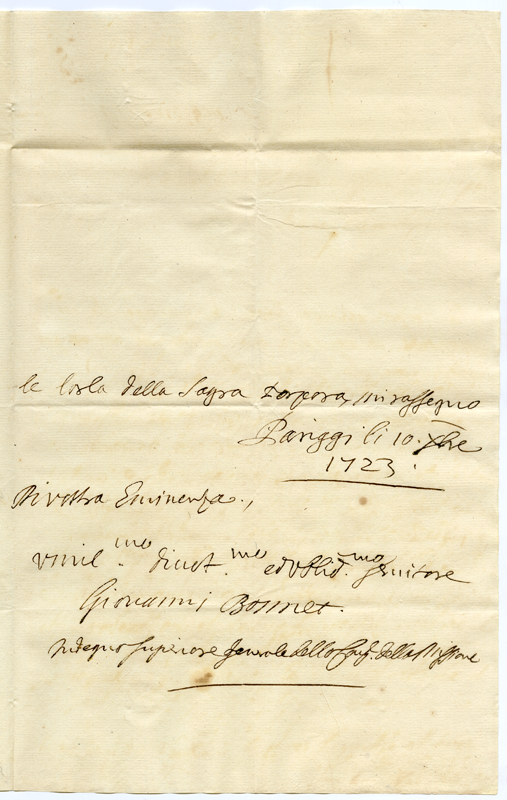 le lorla della Sagra Porpora, mi rassegno
Pariggi li 10. Xbre
1723.
Di vostra Eminenza.,
vmil.mo divot.mo ed obblid.mo servitore
Giovanni Bonnet.
Indegno superiore Generale della Cong. della Missione